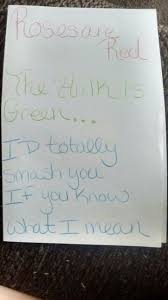 Roses are
Red
The Hulk Is
Green...
I'D totally
smash you
If you know
what I mean